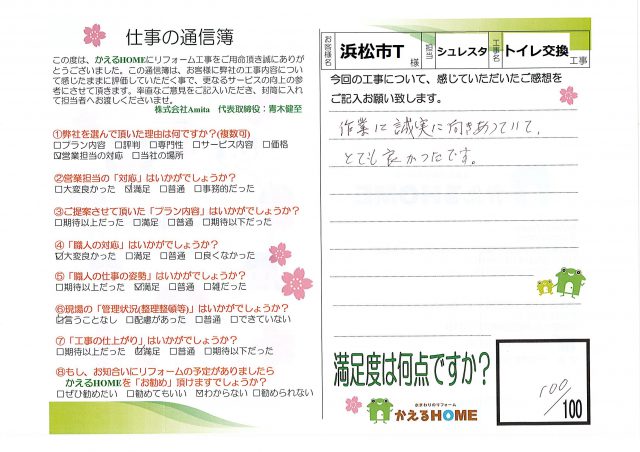 仕事の通信簿
この度は、かえるHOMEにリフォーム工事をご用命頂き誠にありが
とうございました。この通信簿は、お客様に弊社の工事内容につい
て感じたままに評価していただく事で、更なるサービスの向上の参
考にさせて頂きます。率直なご意見をご記入いただき、封筒に入れ
て担当者へお渡しくださいませ。
株式会社Amita 代表取締役:青木健至
①弊社を選んで頂いた理由は何ですか?(複数可)
□プラン内容 □評判 □専門性 □サービス内容 □価格
☑営業担当の対応 □当社の場所
②営業担当の「対応」はいかがでしょうか?
□大変良かった ☑満足 □普通 □事務的だった
③ご提案させて頂いた「プラン内容」はいかがでしょうか?
□期待以上だった □満足 □普通 □期待以下だった
④「職人の対応」はいかがでしょうか?
☑大変良かった □満足 □普通 □良くなかった
⑤「職人の仕事の姿勢」はいかがでしょうか?
□期待以上だった ☑満足 □普通 □雑だった
⑥現場の「管理状況(整理整頓等)」はいかがでしょうか?
☑言うことなし □配慮があった □普通 □できていない
⑦「工事の仕上がり」はいかがでしょうか?
□期待以上だった ☑満足 □普通 □期待以下だった
⑧もし、お知合いにリフォームの予定がありましたら
かえるHOMEを「お勧め」頂けますでしょうか?
□ぜひ勧めたい □勧めてもいい ☑わからない □勧められない
お客様名 浜松市T 様 担当 シュレスタ 工事名 トイレ交換 工事
今回の工事について、感じていただいたご感想を
ご記入お願い致します。
作業に誠実に向きあっていて、
とても良かったです。
満足度は何点ですか?
100/
/100
水まわりのリフォーム
かえるHOME